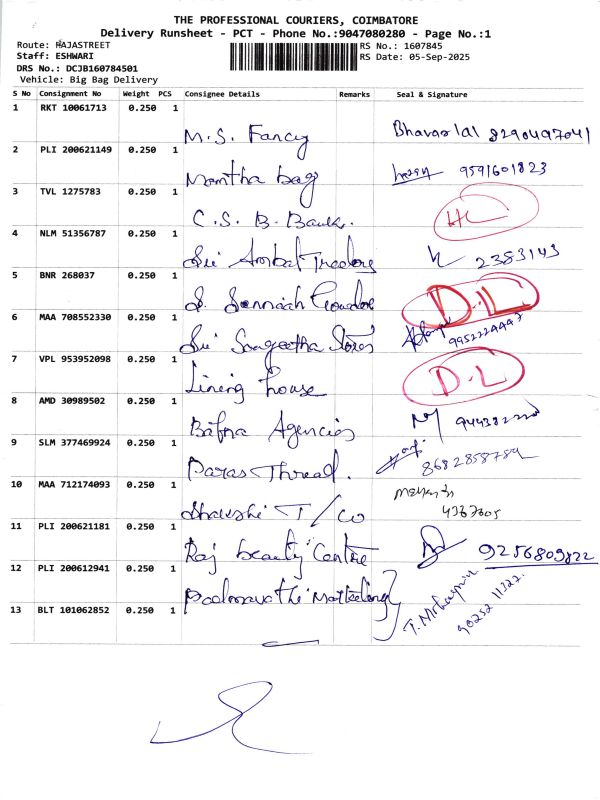 THE PROFESSIONAL COURIERS, COIMBATORE
Delivery Runsheet - PCT - Phone No.:9047080280 - Page No.:1
Route: RAJASTREET
RS No.: 1607845
Staff: ESHWARI
RS Date: 05-Sep-2025
DRS No.: DCJB160784501
Vehicle: Big Bag Delivery
S No Consignment No Weight PCS Consignee Details Remarks Seal & Signature
1 RKT 10061713 0.250 1
M.S. Fancy Bhavarlal 8290497041
2 PLI 200621149 0.250 1
Mamtha bag 9591601823
3 TVL 1275783 0.250 1
C.S.B. Bank.
4 NLM 51356787 0.250 1
Sri Ambal Trading 2383143
5 BNR 268037 0.250 1
S. Gowder D.L
6 MAA 708552330 0.250 1
Sri Sangeetha Stores
7 VPL 953952098 0.250 1
Lining house D.L
8 AMD 30989502 0.250 1
Bafna Agencies
9 SLM 377469924 0.250 1
Paras Thread. 8682858784
10 MAA 712174093 0.250 1
T/Co
11 PLI 200621181 0.250 1
Raj beauty Centre 9256809822
12 PLI 200612941 0.250 1
Padmavathi Marketing
13 BLT 101062852 0.250 1
90252 11322